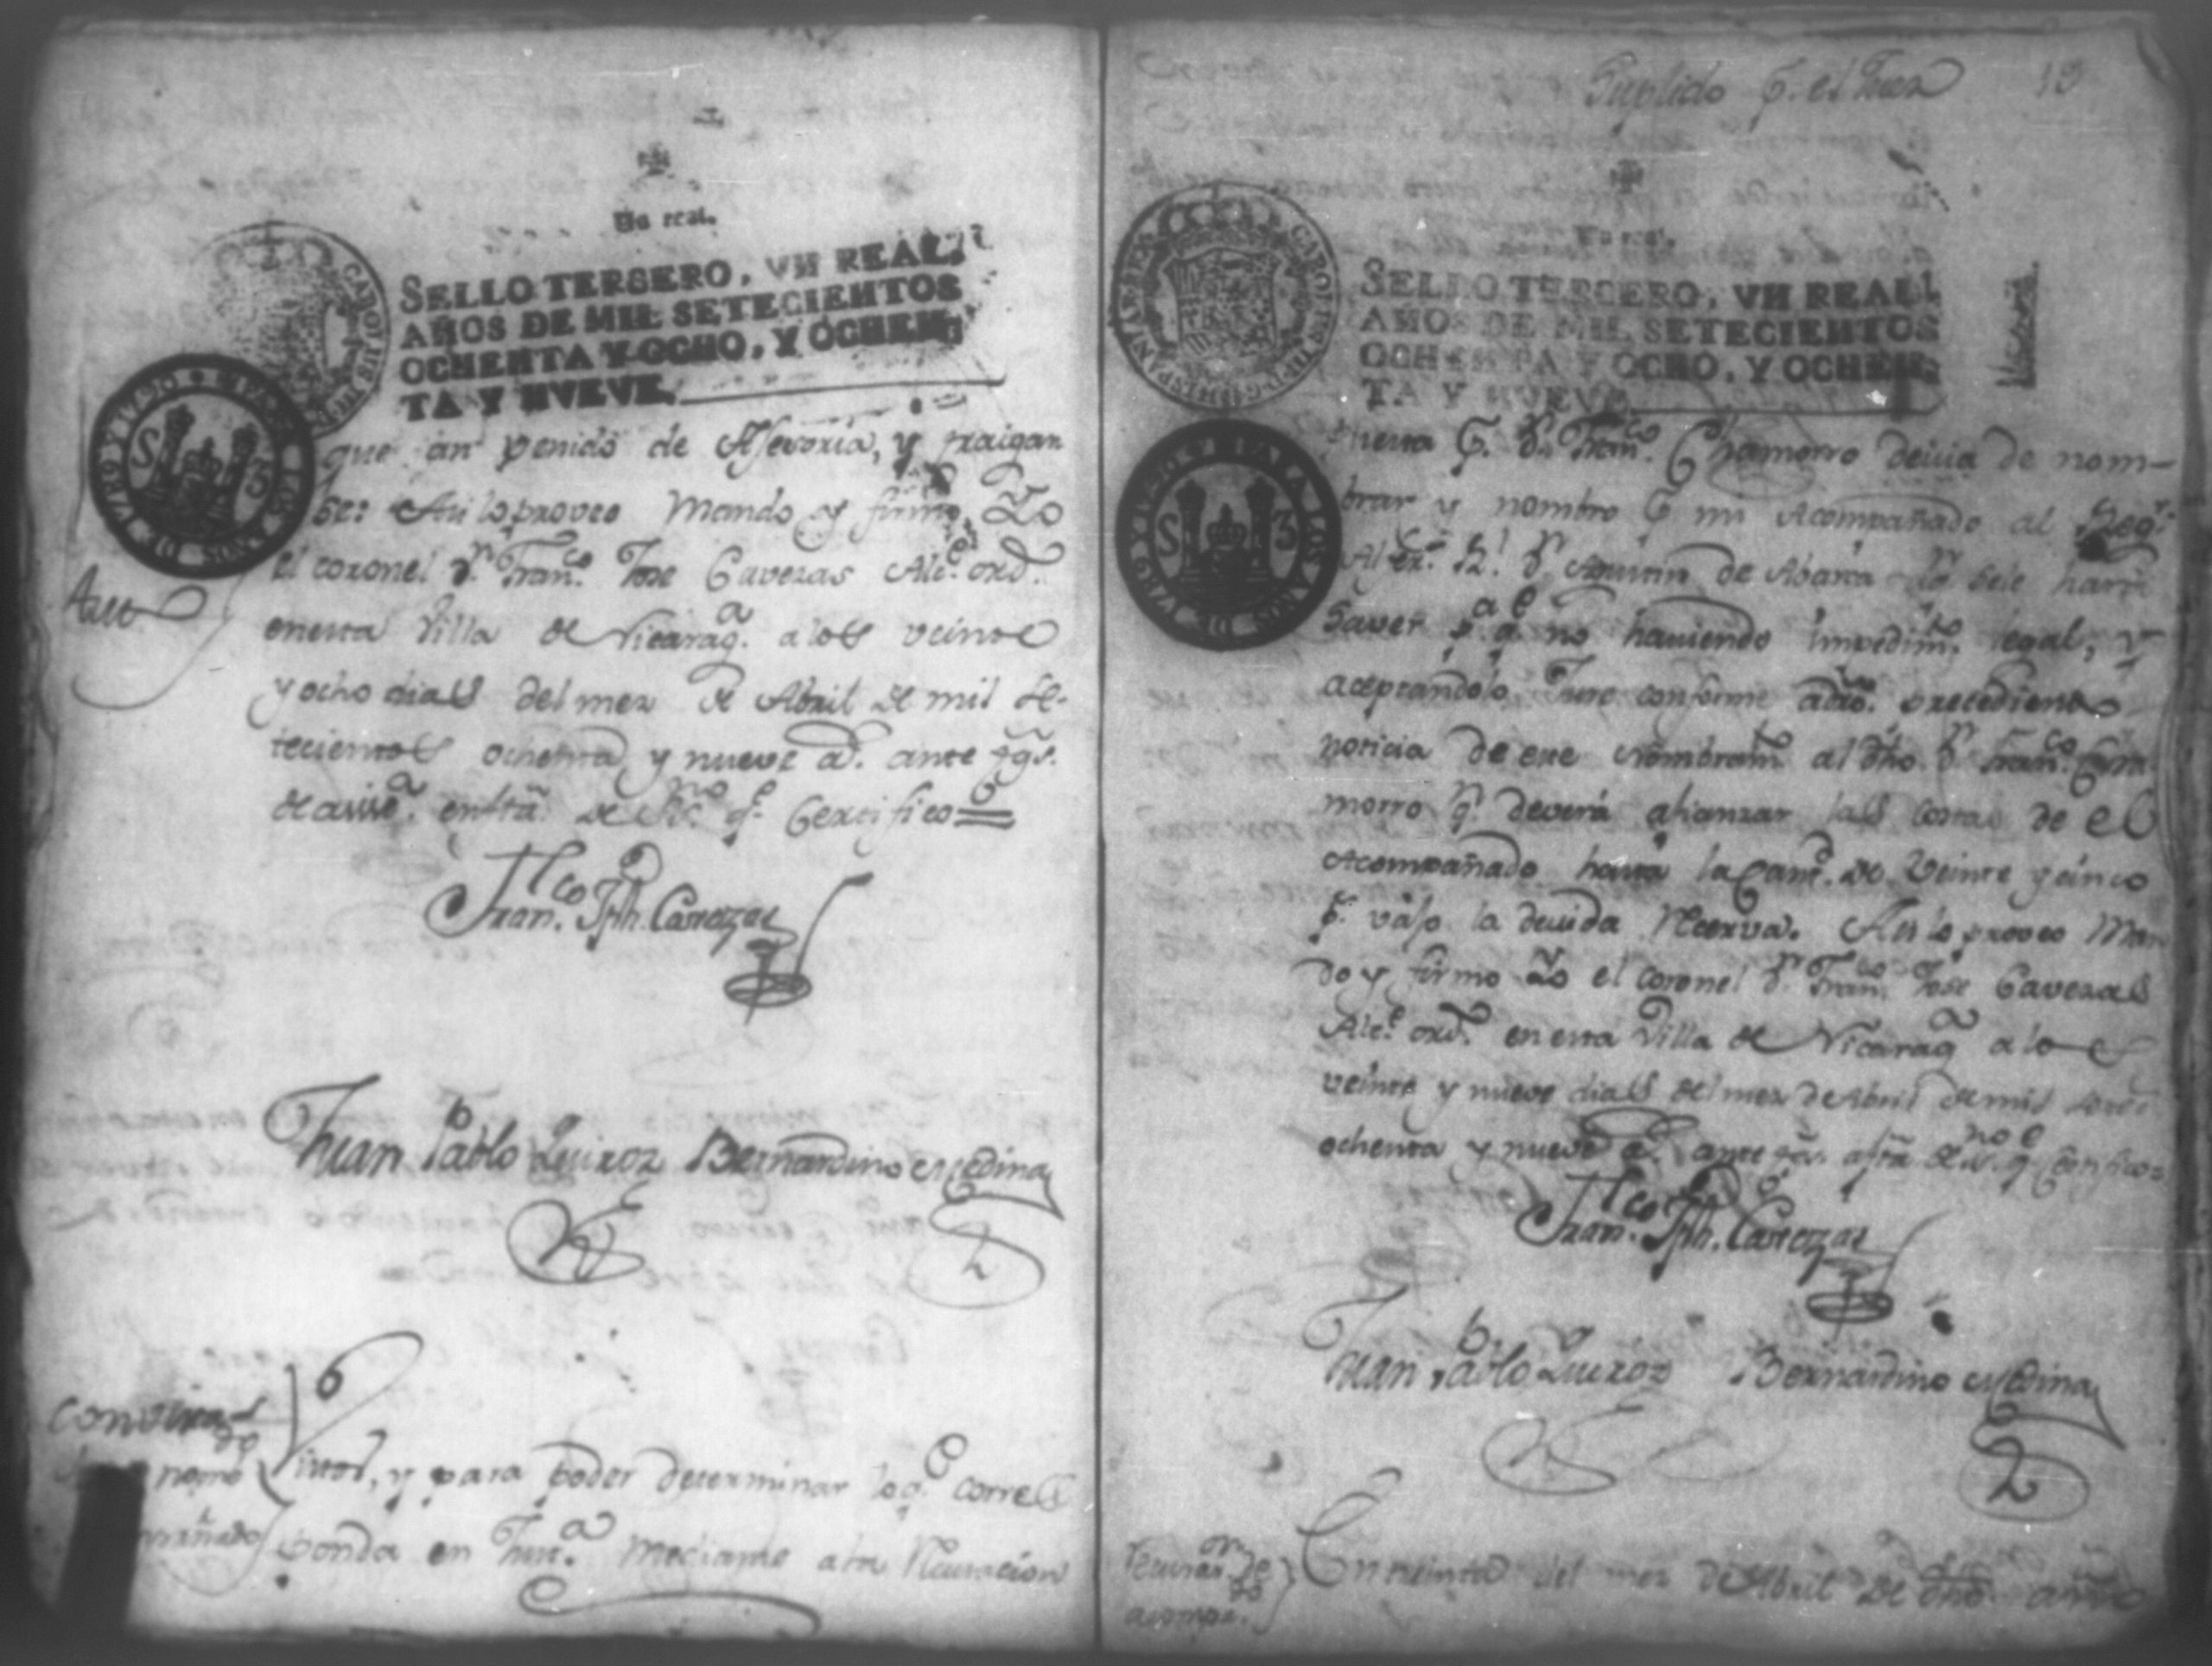 Un real.
SELLO TERSERO, VN REAL,
AÑOS DE MIL SETECIENTOS
OCHENTA Y OCHO, Y OCHEN
TA Y NUEVE.
CAROLUS III
PARA LOS AÑOS DE 1790 Y 1791
S 3
que an venido de Asesoria, y traigan
se: Asi lo proveo mando y firmo Yo
el coronel Dn. Franco. Jose Cavezas Alce. ord.
Auto
en esta Villa de Nicaraga. a los veinte
y ocho dias del mez de Abril de mil se-
tecientos ochenta, y nueve as. ante tgs.
de assa. en fta. de Sno. qe. Certifico=
Franco. Jph. Cavezas
Juan Pablo Quiroz Bernardino Medina
nomb
pañado
Vistos, y para poder determinar lo qe. corres
ponda en Jusa. mediante a la Recusacion
Suplido p. el Juez 13
Un real.
SELLO TERCERO, VN REAL
AÑOS DE MIL SETECIENTOS
OCHENTA Y OCHO, Y OCHEN
TA Y NUEVE.
CAROLUS III D G HISPANIAR REX
PARA LOS AÑOS DE 1790 Y 1791
S 3
puesta p. Dn. Franco. Chamorro devia de nom-
brar y nombro p. mi Acompañado al Regr.
Alferz. Rl. Dn. Agustin de Abarca lo qe. se le hara
saver pa. qe. no haviendo impedimto. legal, y
aceptandolo Jure conforme a dro. precediendo
noticia de este nombramto. al dho. Dn. Franco. Cha
morro qn. deverá afianzar las costas de el
Acompañado hasta la cantd. de Veinte y cinco
ps. vajo la devida Reserva. Asi lo proveo Man
do y firmo Yo el coronel Dn. Franco. Jose Cavezas
Alce. ordo. en esta Villa de Nicaraga. a los
veinte y nueve dias del mez de Abril de mil setecs.
ochenta y nueve as. ante tgs. a fta. de Sno. qe. Certifico=
Franco. Jph. Cavezas
Juan Pablo Quiroz Bernardino Medina
En treinta del mez de Abril de dho. año